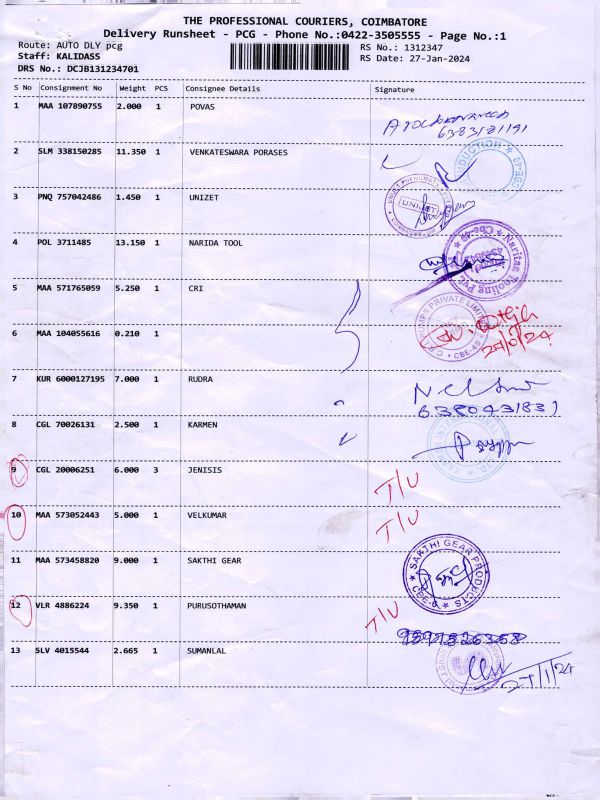 THE PROFESSIONAL COURIERS, COIMBATORE
Delivery Runsheet - PCG - Phone No.:0422-3505555 - Page No.:1
Route: AUTO DLY pcg
RS No.: 1312347
Staff: KALIDASS
RS Date: 27-Jan-2024
DRS No.: DCJB131234701
S No Consignment No Weight PCS Consignee Details Signature
1 MAA 107890755 2.000 1 POVAS
2 SLM 338150285 11.350 1 VENKATESWARA PORASES
3 PNQ 757042486 1.450 1 UNIZET
4 POL 3711485 13.150 1 NARIDA TOOL
5 MAA 571765059 5.250 1 CRI
6 MAA 104055616 0.210 1
7 KUR 6000127195 7.000 1 RUDRA
8 CGL 70026131 2.500 1 KARMEN
9 CGL 20006251 6.000 3 JENISIS T/U
10 MAA 573052443 5.000 1 VELKUMAR T/U
11 MAA 573458820 9.000 1 SAKTHI GEAR
SAKTHI GEAR PRODUCTS
CBE-6
12 VLR 4886224 9.350 1 PURUSOTHAMAN T/U
13 SLV 4015544 2.665 1 SUMANLAL
27/1/24